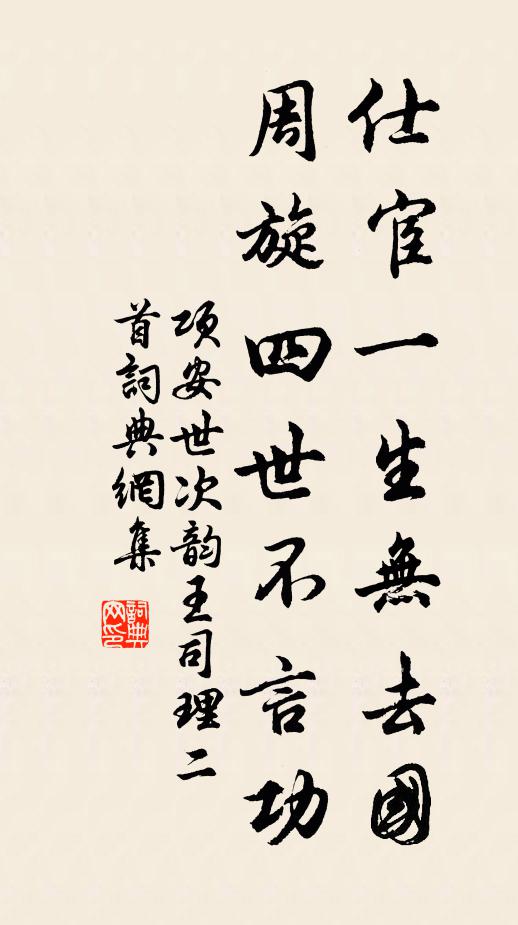 仕宦一生無去國
周旋四世不言功
項安世次韵王司理二
首詞典網集
詞典网印